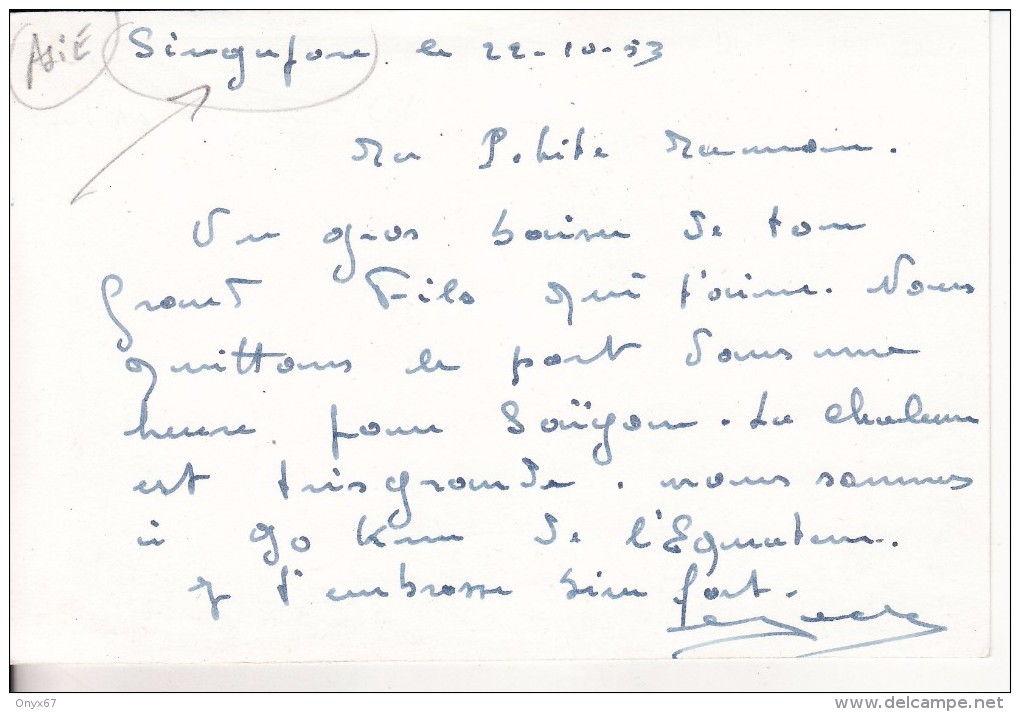 Asie
Singapore le 22-10-53
Ma Petite Maman.
Un gros baiser de ton
Grand Fils qui t'aime. Nous
quittons le port dans une
heure pour Saïgon. La chaleur
est très grande. nous sommes
à 90 Km de l'Equateur.
J t'embrasse bien fort.
Onyx67
www.delcampe.net